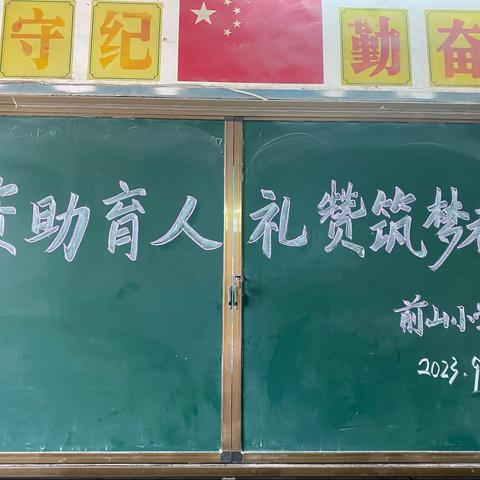 守纪 勤奋
资助育人 礼赞筑梦
前山小学
2023.9